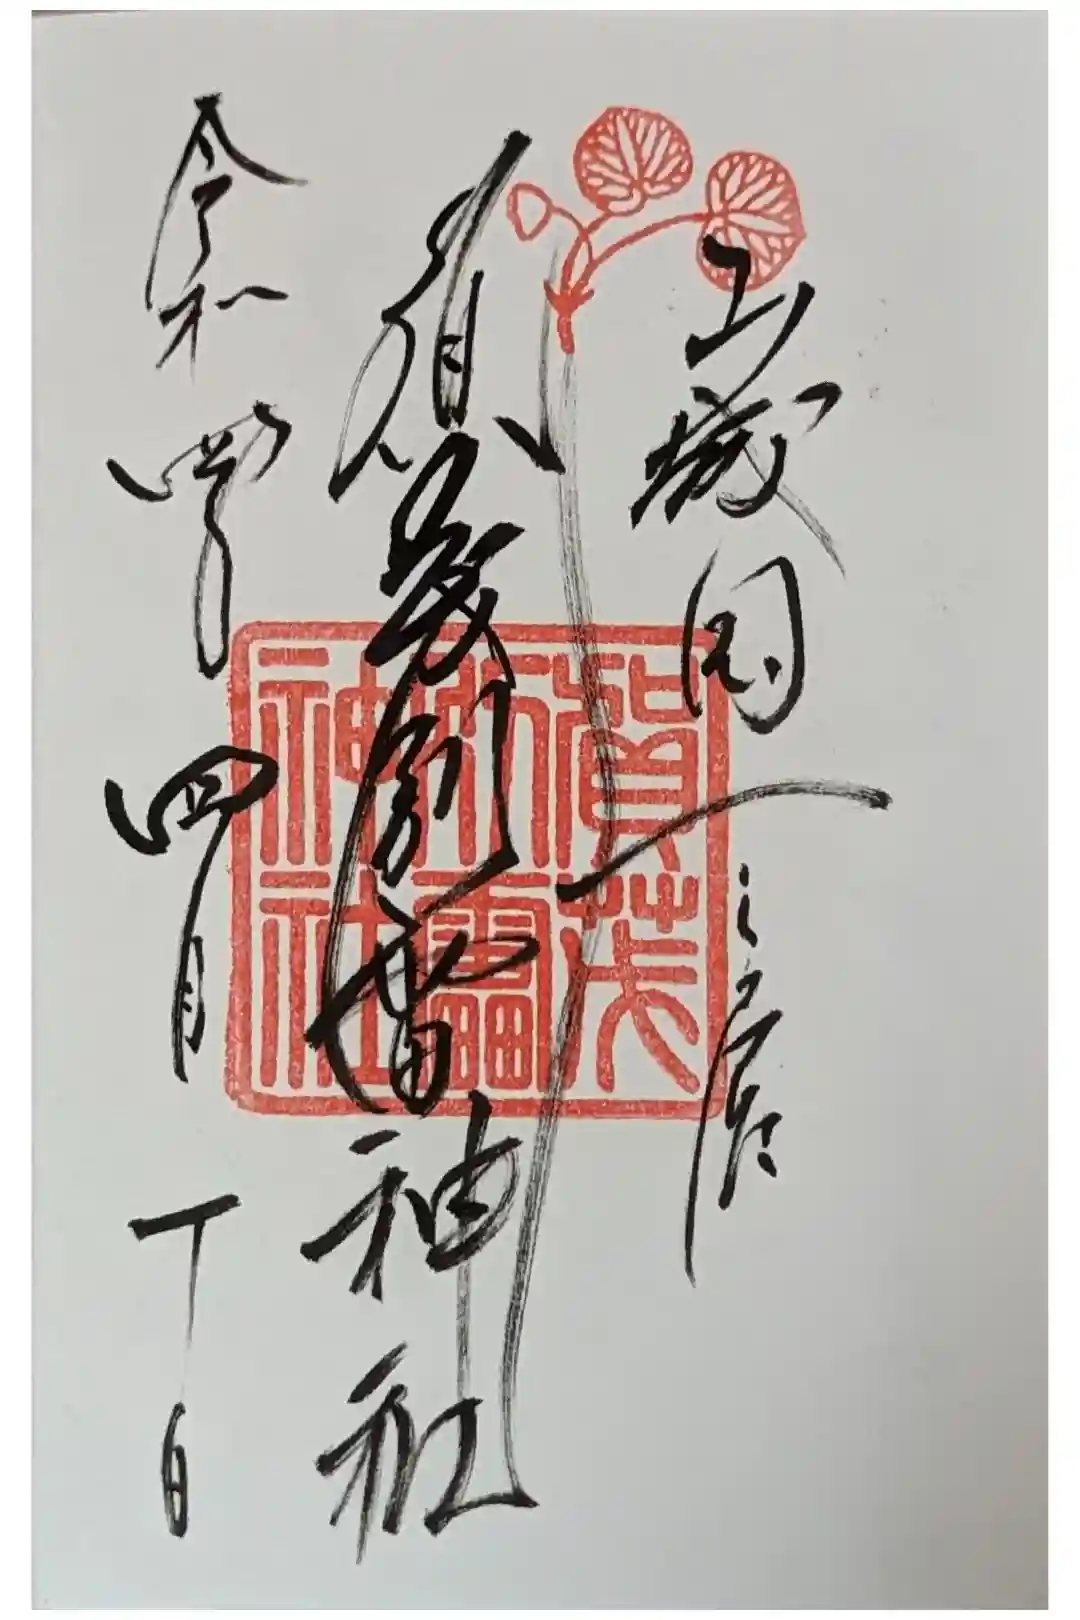 山城国一之宮
賀茂別雷神社
令和四年四月 日
賀茂
別雷
神社